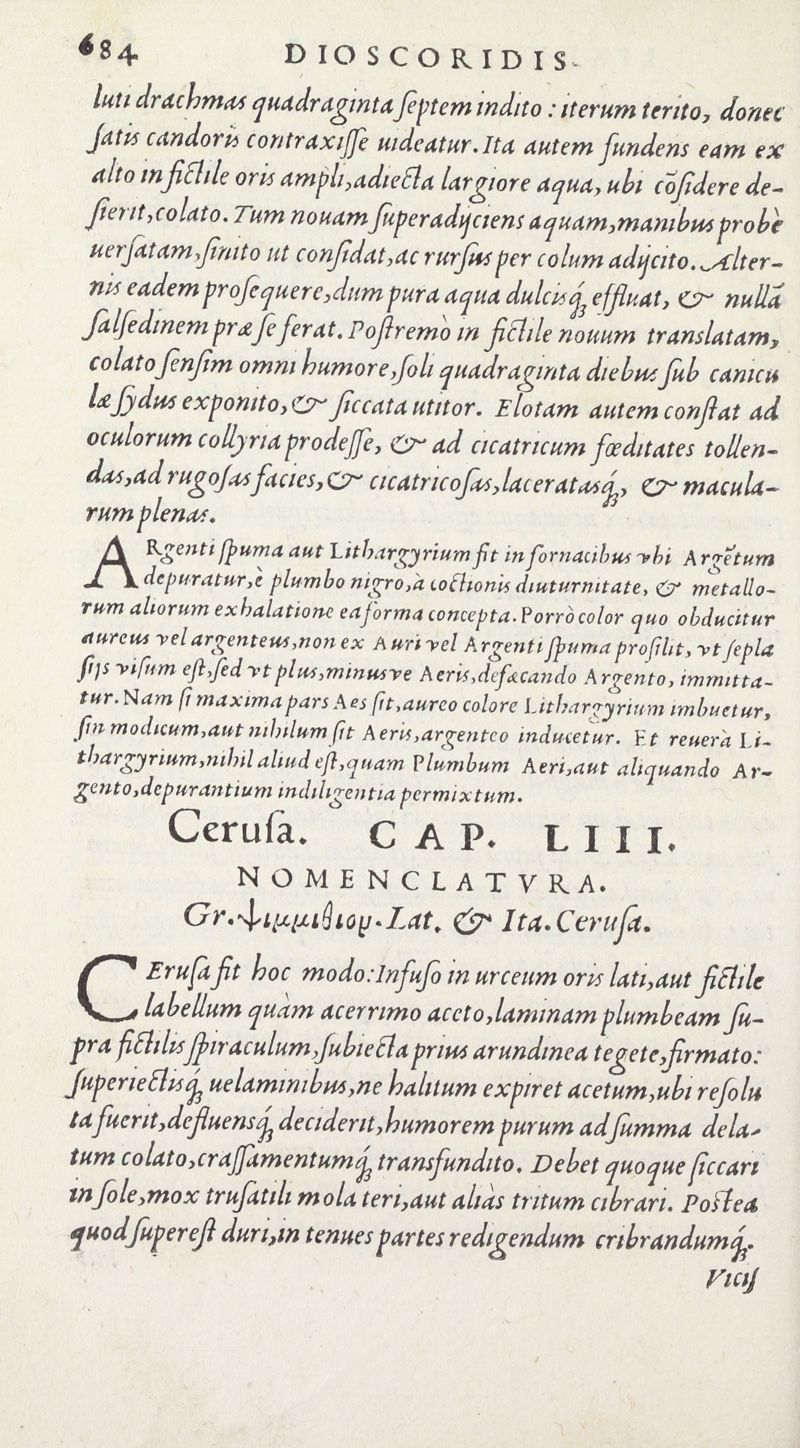 684 DIOSCORIDIS.
luti drachmas quadraginta ſeptem indito : iterum terito, donec
ſatis candoris contraxiſſe uideatur. Ita autem fundens eam ex
alto in fictile oris ampli, adiecta largiore aqua, ubi cōſidere de-
ſierit, colato. Tum nouam ſuperadijciens aquam, manibus probè
uerſatam, ſinito ut conſidat, ac rurſus per colum adijcito. Alter-
nis eadem proſequere, dum pura aqua dulcisq́; effluat, & nullā
ſalſedinem præ ſe ferat. Poſtremò in fictile nouum translatam,
colato ſenſim omni humore, ſoli quadraginta diebus ſub canicu
læ ſydus exponito, & ſiccata utitor. Elotam autem conſtat ad
oculorum collyria prodeſſe, & ad cicatricum fœditates tollen-
das, ad rugoſas facies, & cicatricoſas, laceratasq́;, & macula-
rum plenas.
ARgenti ſpuma aut Lithargyrium fit in fornacibus vbi Argētum
depuratur, è plumbo nigro, à coctionis diuturnitate, & metallo-
rum aliorum exhalatione ea forma concepta. Porrò color quo obducitur
aureus vel argenteus, non ex Auri vel Argenti ſpuma proſilit, vt ſepla
ſijs viſum eſt, ſed vt plus, minusve Aeris, defæcando Argento, immitta-
tur. Nam ſi maxima pars Aes ſit, aureo colore Lithargyrium imbuetur,
ſin modicum, aut nihilum ſit Aeris, argenteo inducetur. Et reuerà Li-
thargyrium, nihil aliud eſt, quam Plumbum Aeri, aut aliquando Ar-
gento, depurantium indiligentia permixtum.
Ceruſa. CAP. LIII.
NOMENCLATVRA.
Gr. ψιμμιθιον. Lat. & Ita. Ceruſa.
CEruſa fit hoc modo: Infuſo in urceum oris lati, aut fictile
labellum quàm acerrimo aceto, laminam plumbeam ſu-
pra fictilis ſpiraculum, ſubiecta prius arundinea tegete, firmato:
ſuperiectisq́; uelaminibus, ne halitum expiret acetum, ubi reſolu
ta fuerit, defluensq́; deciderit, humorem purum ad ſumma dela-
tum colato, craſſamentumq́; transfundito. Debet quoque ſiccari
in ſole, mox truſatili mola teri, aut aliàs tritum cibrari. Poſtea
quod ſupereſt duri, in tenues partes redigendum cribrandumq́;.
Viciſ